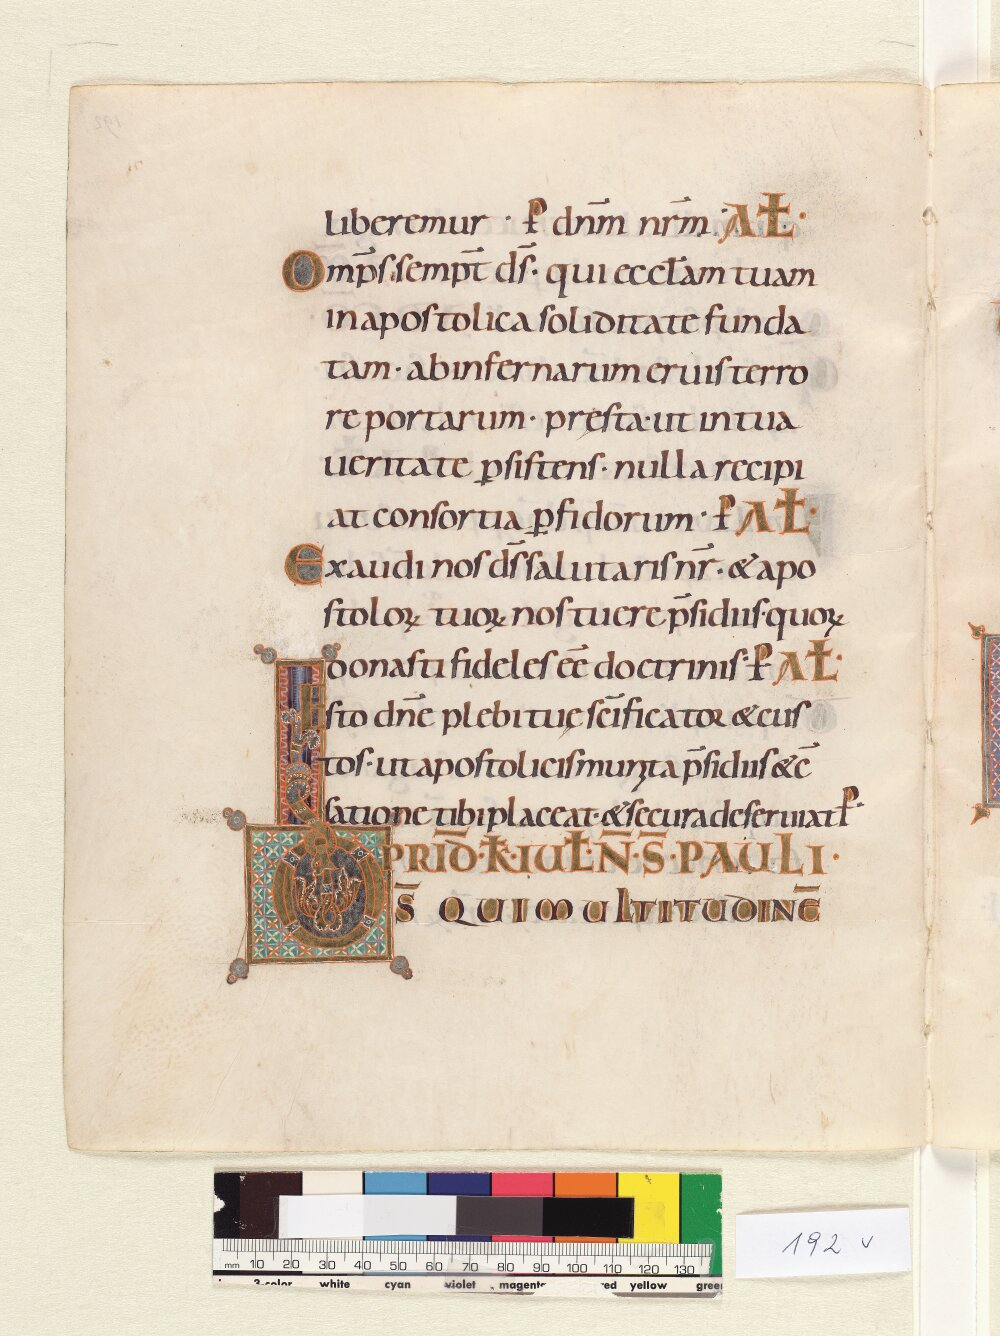 liberemur · P dnm nrm · AL ·
Omps sempt ds · qui eccl̄am tuam
in apostolica soliditate funda
tam · ab infernarum eruis terro
re portarum · pręsta · ut in tua
ueritate p̱sistens · nulla recipi
at consortia p̱fidorum · P AL ·
Exaudi nos d̄s salutaris nr̄ · & apo
stoloꝝ tuoꝝ nos tuere p̄sidiis · quoꝝ
donasti fideles eē doctrinis · P AL ·
Esto dn̄e plebi tuę sc̄ificator & cus
tos · ut apostolicis munita p̄sidiis & c̄
satione tibi placeat · & secura deseruiat P ·
PRID · K · IUL · N̄ · S̄ · PAULI ·
D S̄ QUI MULTITUDINĒ
192 v
mm 10 20 30 40 50 60 70 80 90 100 110 120 130
3-color white cyan violet magenta red yellow green